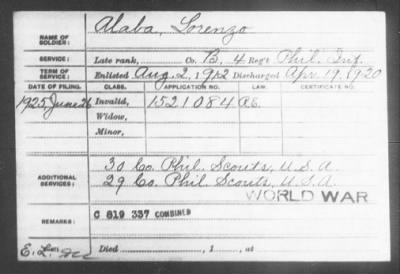 NAME OF SOLDIER: Alaba, Lorenzo
SERVICE: Late rank, Co. B, 4 Reg't Phil. Inf.
TERM OF SERVICE: Enlisted Aug. 2, 1912 Discharged Apr. 19, 1920
DATE OF FILING. CLASS. APPLICATION NO. LAW. CERTIFICATE NO.
1925 June 26 Invalid, 1521084
Widow,
Minor,
ADDITIONAL SERVICES: 30 Co. Phil. Scouts, U.S.A.
29 Co. Phil. Scouts, U.S.A.
WORLD WAR
REMARKS: C 819 337 COMBINED
Died , 1 , at